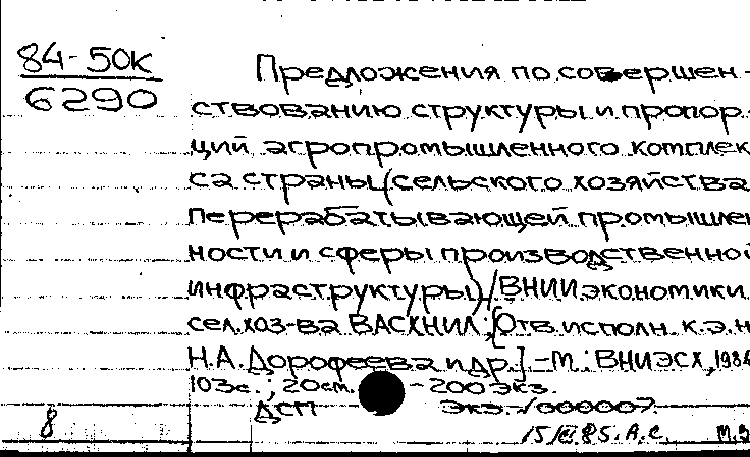 84-50к
6290
Предложения по совершен-
ствованию структуры и пропор-
ций агропромышленного комплек
са страны (сельского хозяйства
перерабатывающей промышлен
ности и сферы производственной
инфраструктуры) / ВНИИ экономики
сел. хоз-ва ВАСХНИЛ; [Отв. исполн. к.э.н
Н.А. Дорофеева и др.] - М.: ВНИЭСХ, 1984
103с.; 20см. - 200 экз.
ДСП Экз. √000007
8
15/III.85. А.С. М.Э